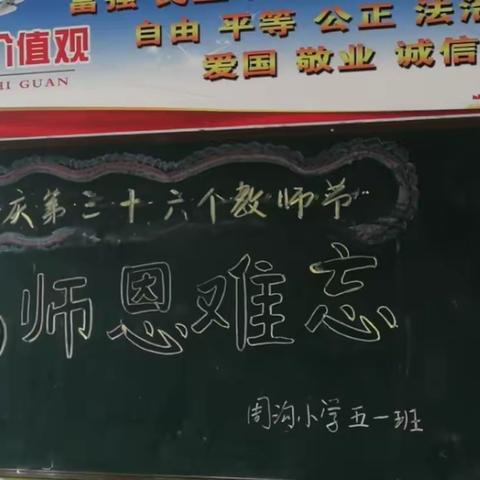 富强 民主
价值观 自由 平等 公正 法治
HI GUAN 爱国 敬业 诚信
庆第三十六个教师节
师恩难忘
周沟小学五一班